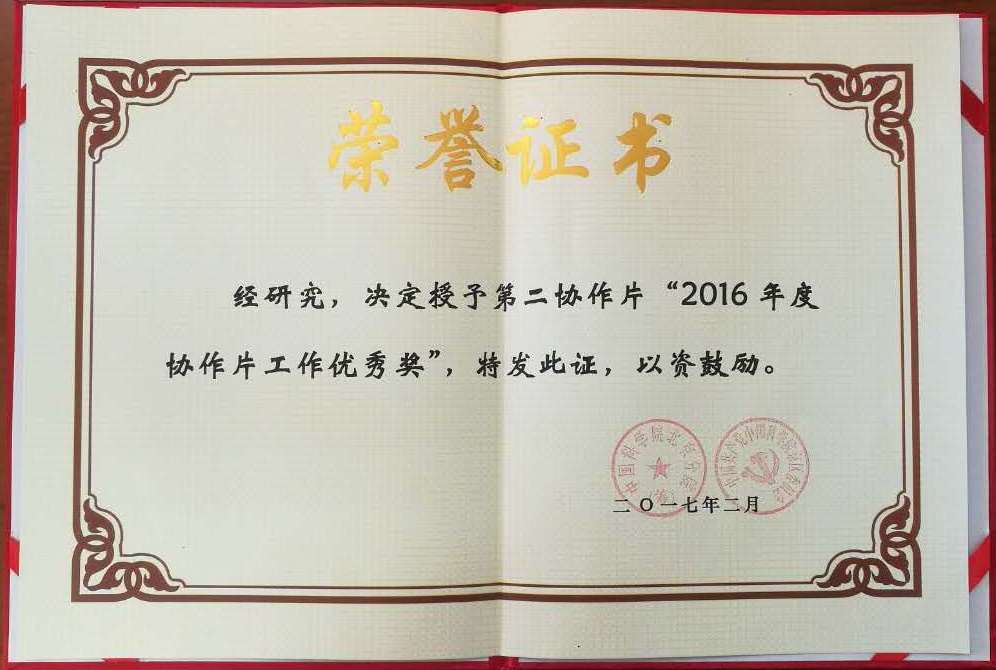 荣誉证书
经研究，决定授予第二协作片“2016年度
协作片工作优秀奖”，特发此证，以资鼓励。
中国科学院北京分院
二〇一七年二月